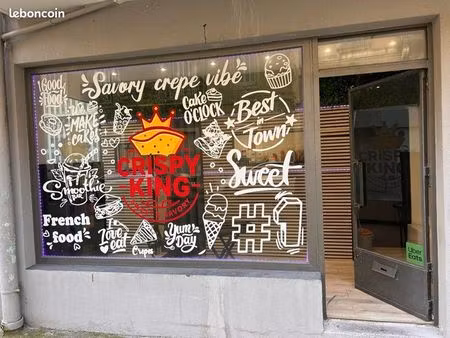 leboncoin
Good
Food
Savory crepe vibe
MAKE
CAKES
CAKE
O'CLOCK
BEST
in
TOWN
CRISPY
KING
SAVORY
Smoothie
Sweet
French
food
I Love
eat
Crepes
Yum
DAY
#1
CRISPY
KING
Uber
Eats